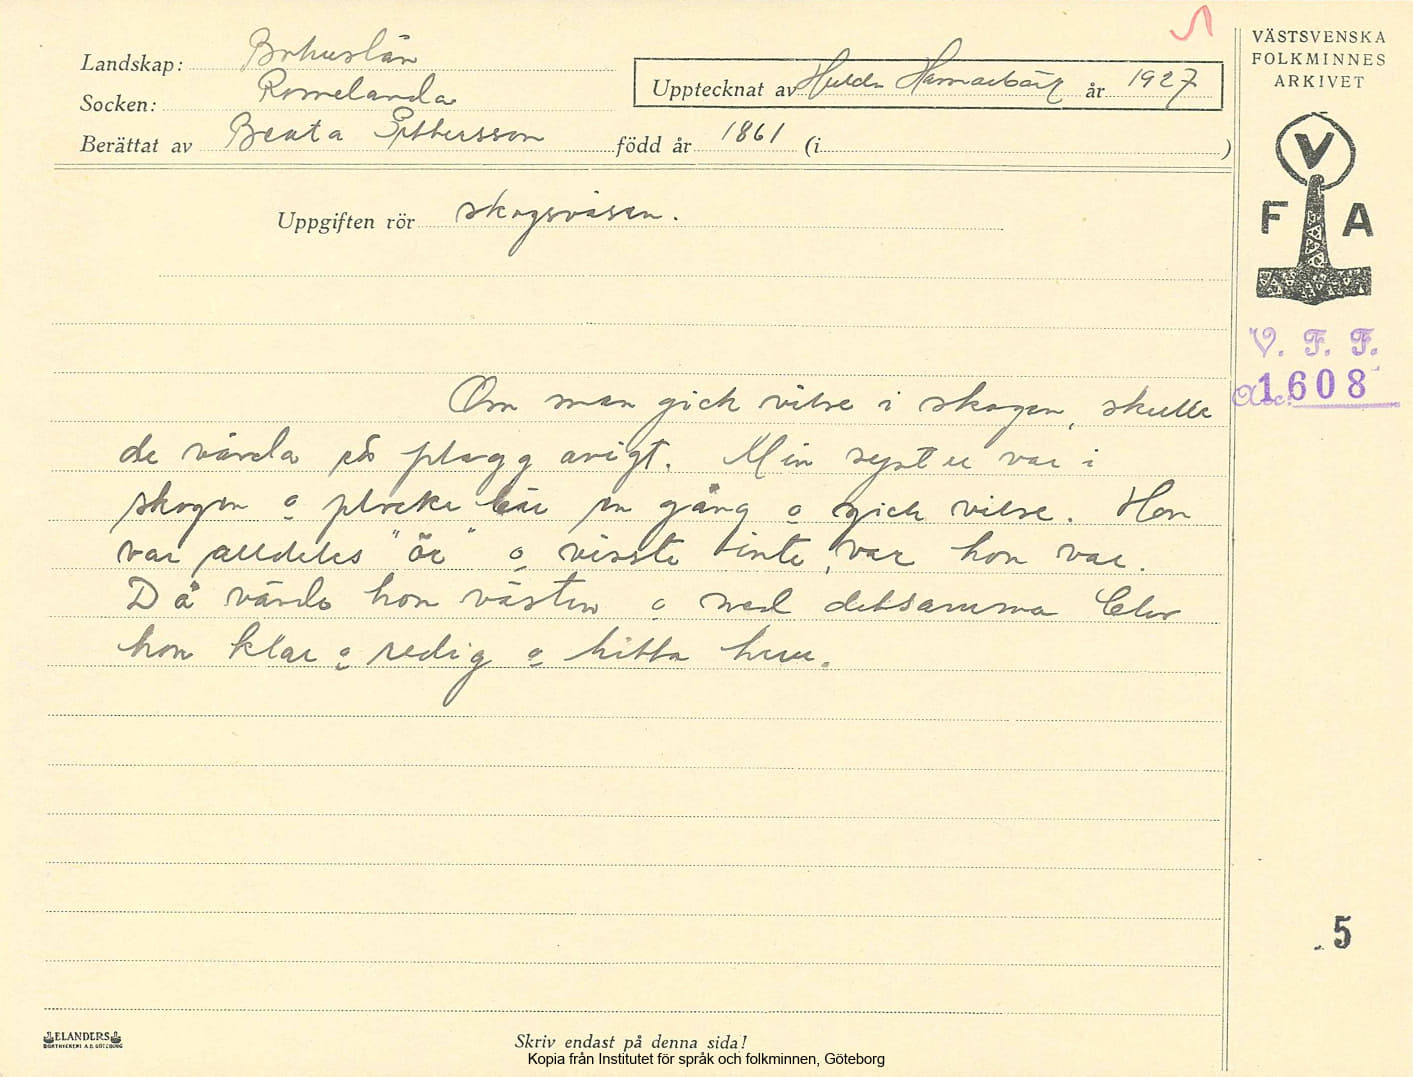 Landskap: Bohuslän
Socken: Romelanda
Berättat av Beata Pettersson född år 1861 (i )
Upptecknat av Hulda Hammarbäck år 1927
VÄSTSVENSKA
FOLKMINNES
ARKIVET
V
F A
Uppgiften rör skogsväsen.
V. F. F.
Acc. 1608
Om man gick vilse i skogen, skulle
de vända ett plagg avigt. Min syster var i
skogen o plocke bär en gång o gick vilse. Hon
var alldeles "ör" o visste inte, var hon var.
Då vände hon västen o med detsamma blev
hon klar o redig o hitta hem.
5
ELANDERS
BOKTRYCKERI A.B. GÖTEBORG
Skriv endast på denna sida!
Kopia från Institutet för språk och folkminnen, Göteborg